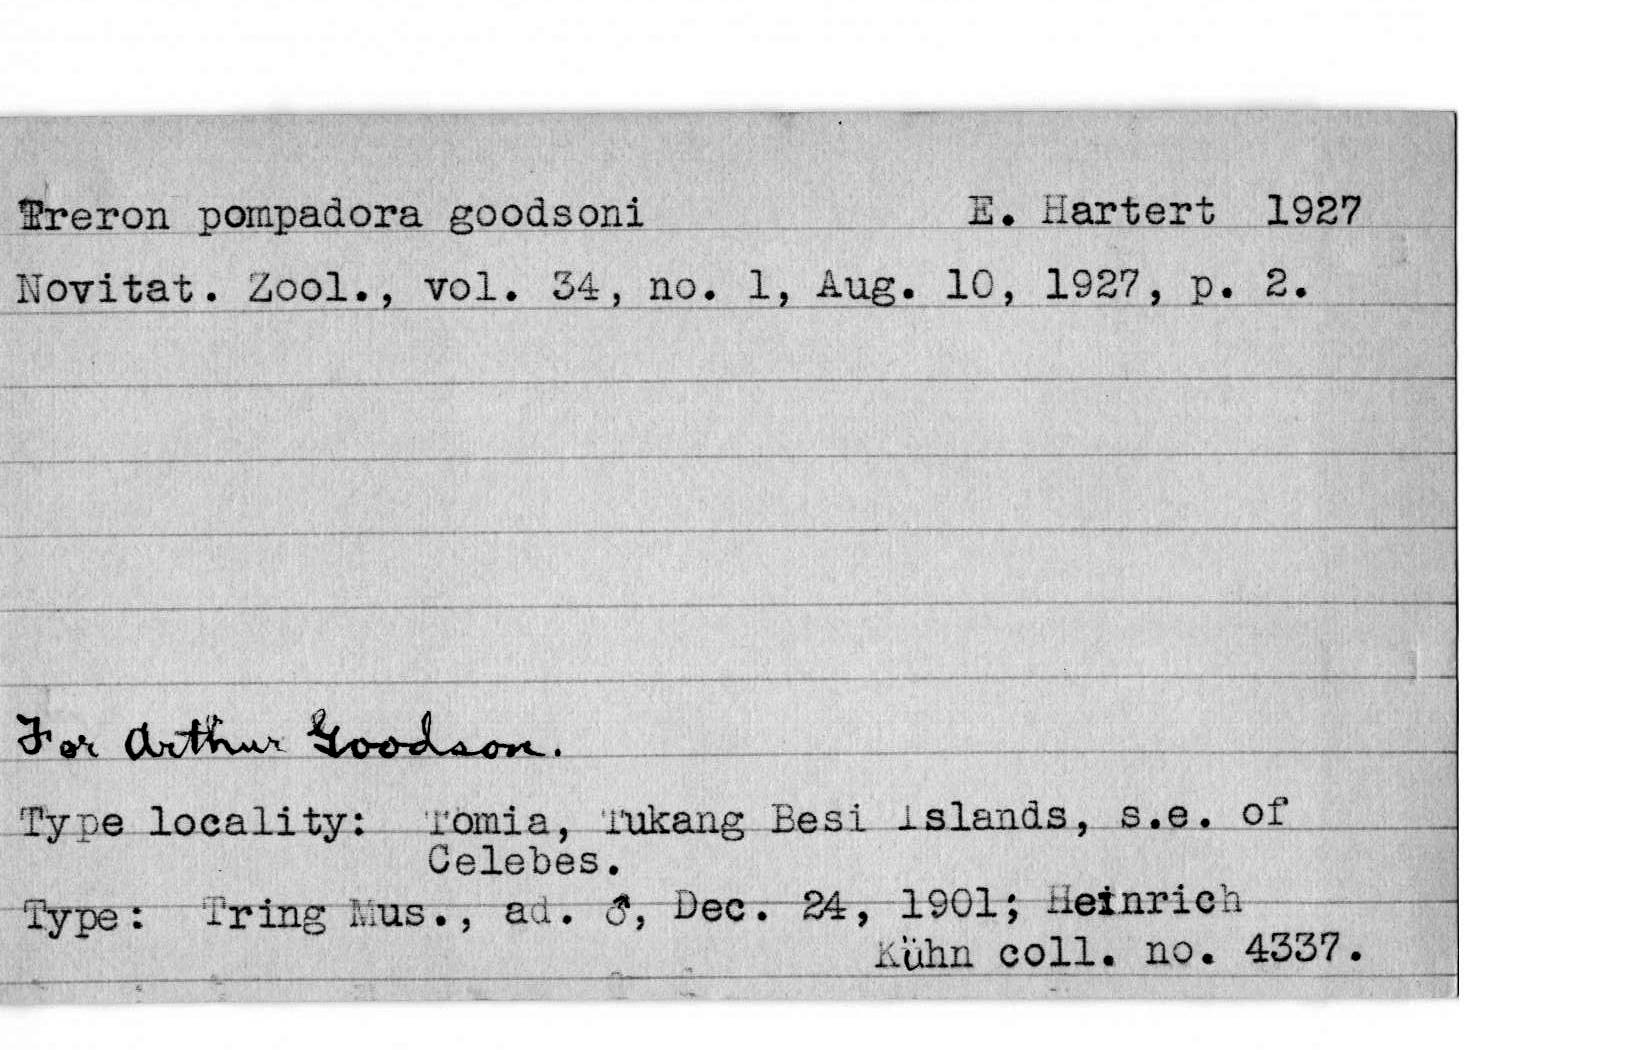 Treron pompadora goodsoni E. Hartert 1927
Novitat. Zool., vol. 34, no. 1, Aug. 10, 1927, p. 2.
For Arthur Goodson.
Type locality: Tomia, Tukang Besi Islands, s.e. of
Celebes.
Type: Tring Mus., ad. ♂, Dec. 24, 1901; Heinrich
Kühn coll. no. 4337.